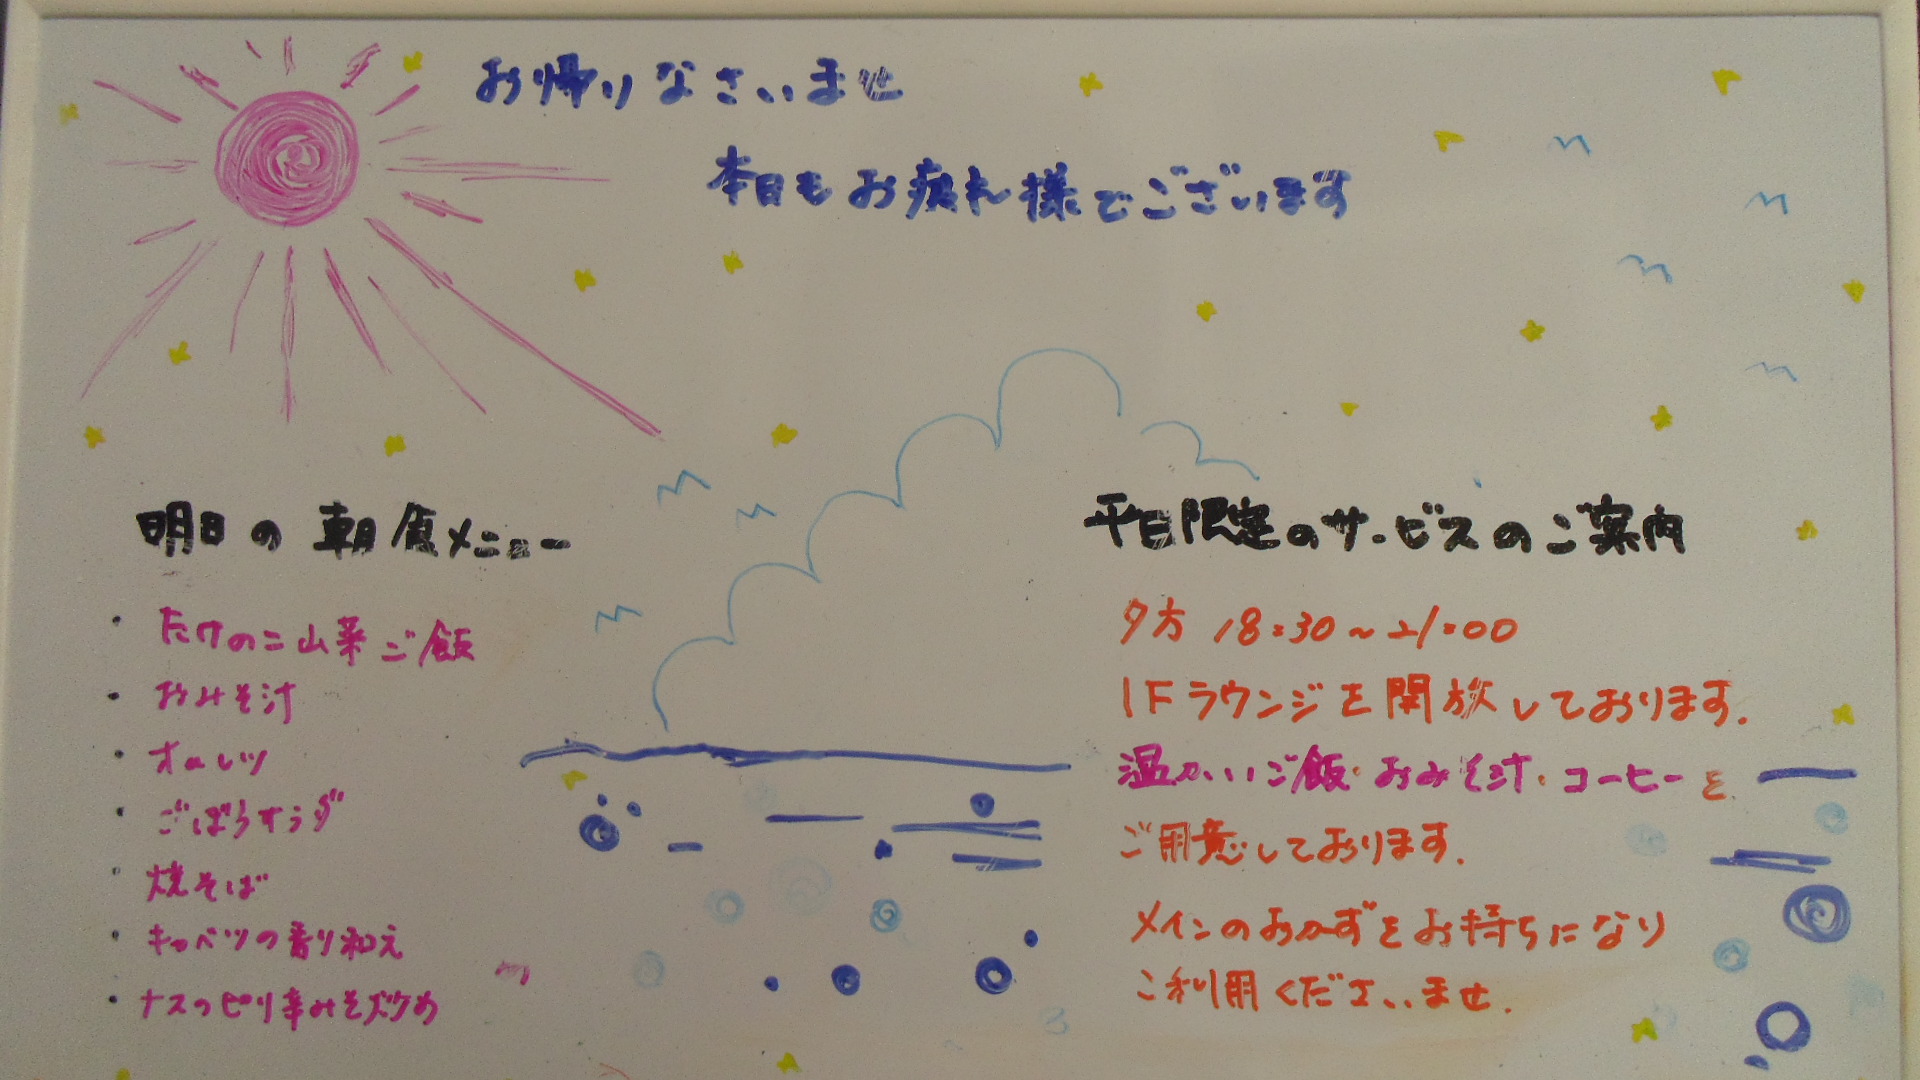 お帰りなさいませ
本日もお疲れ様でございます
明日の朝食メニュー
・たけのこ山菜ご飯
・おみそ汁
・オムレツ
・ごぼうサラダ
・焼そば
・キャベツの香り和え
・ナスのピリ辛みそ炒め
平日限定のサービスのご案内
夕方 18:30~21:00
1Fラウンジを開放しております.
温かいご飯・おみそ汁・コーヒーを
ご用意しております.
メインのおかずをお持ちになり
ご利用くださいませ.